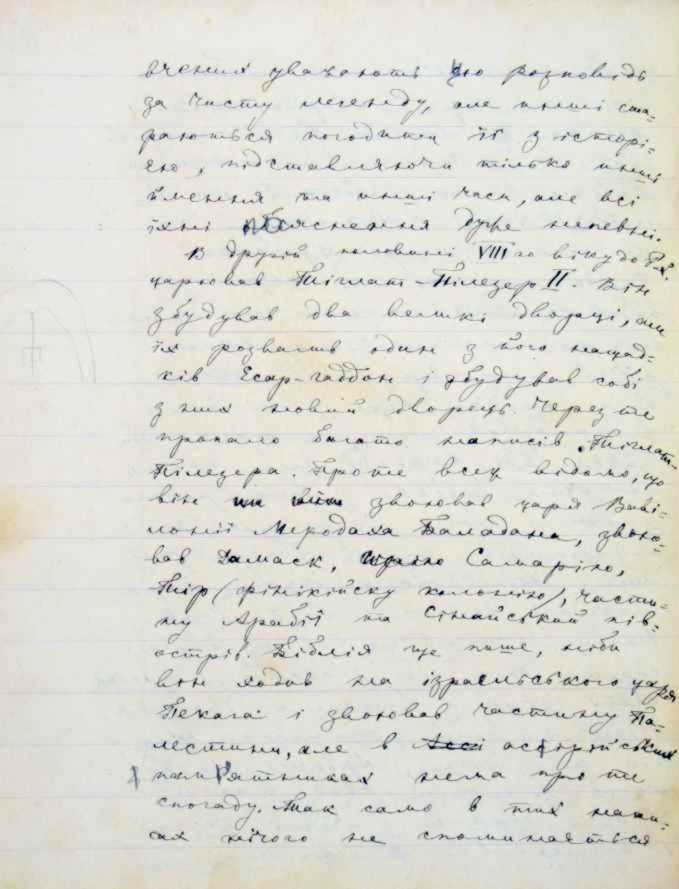 вчених уважають цю розповідь
за чисту легенду, але инші ста-
раються погодити її з історі-
єю, підставляючи тілько инші
ймення та инші часи, але всі
їхні обяснення дуже непевні.
В другій половині VIII го віку до Р. Х.
царював Тіглат-Пілезер II. Він
збудував два великі дворці, але
їх розвалив один з його нащад-
ків Есар-гаддон і збудував собі
з них новий дворець. Через те
пропало богато написів Тіглат-
Пілезера. Проте всеж відомо, що
він звоював царя Вави-
лонії Меродаха Баладана, звою-
вав Дамаск, Самарію,
Тир (фінікійську колонію), части-
ну Арабії та Сінайський пів-
острів. Біблія ще пише, ніби
він ходив на ізраельського царя
Пекага і звоював частину Па-
лестини, але в ассірійських
памятниках нема про те
спогаду. Так само в тих напи-
сах нічого не споминається